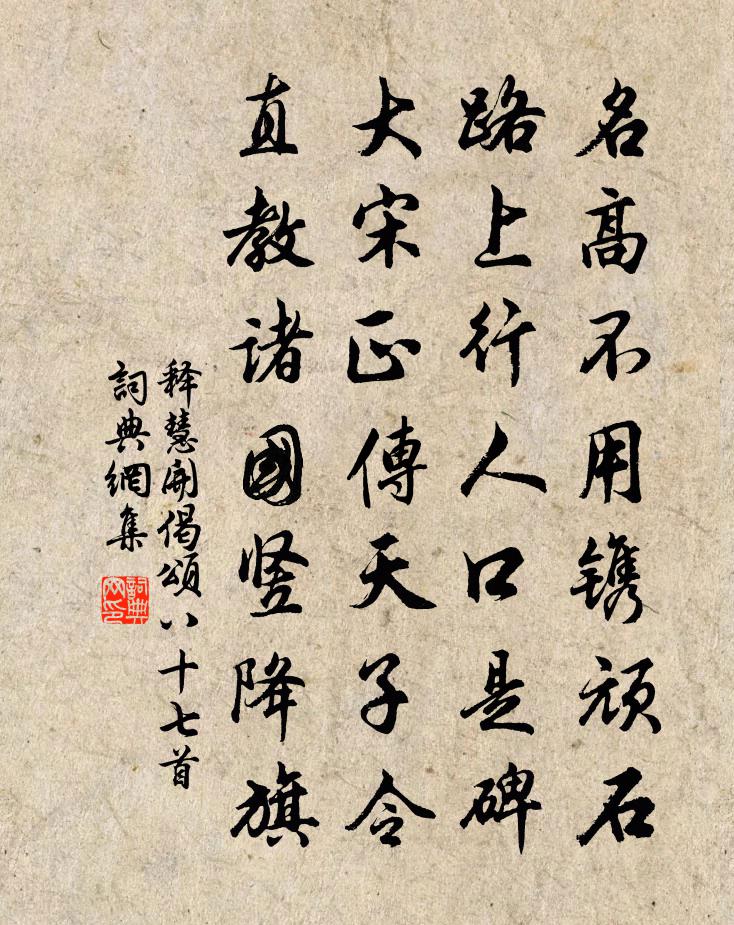 名高不用镌顽石
路上行人口是碑
大宋正傳天子令
直教诸國竖降旗
释慧開偈頌八十七首
詞典網集
詞典網印